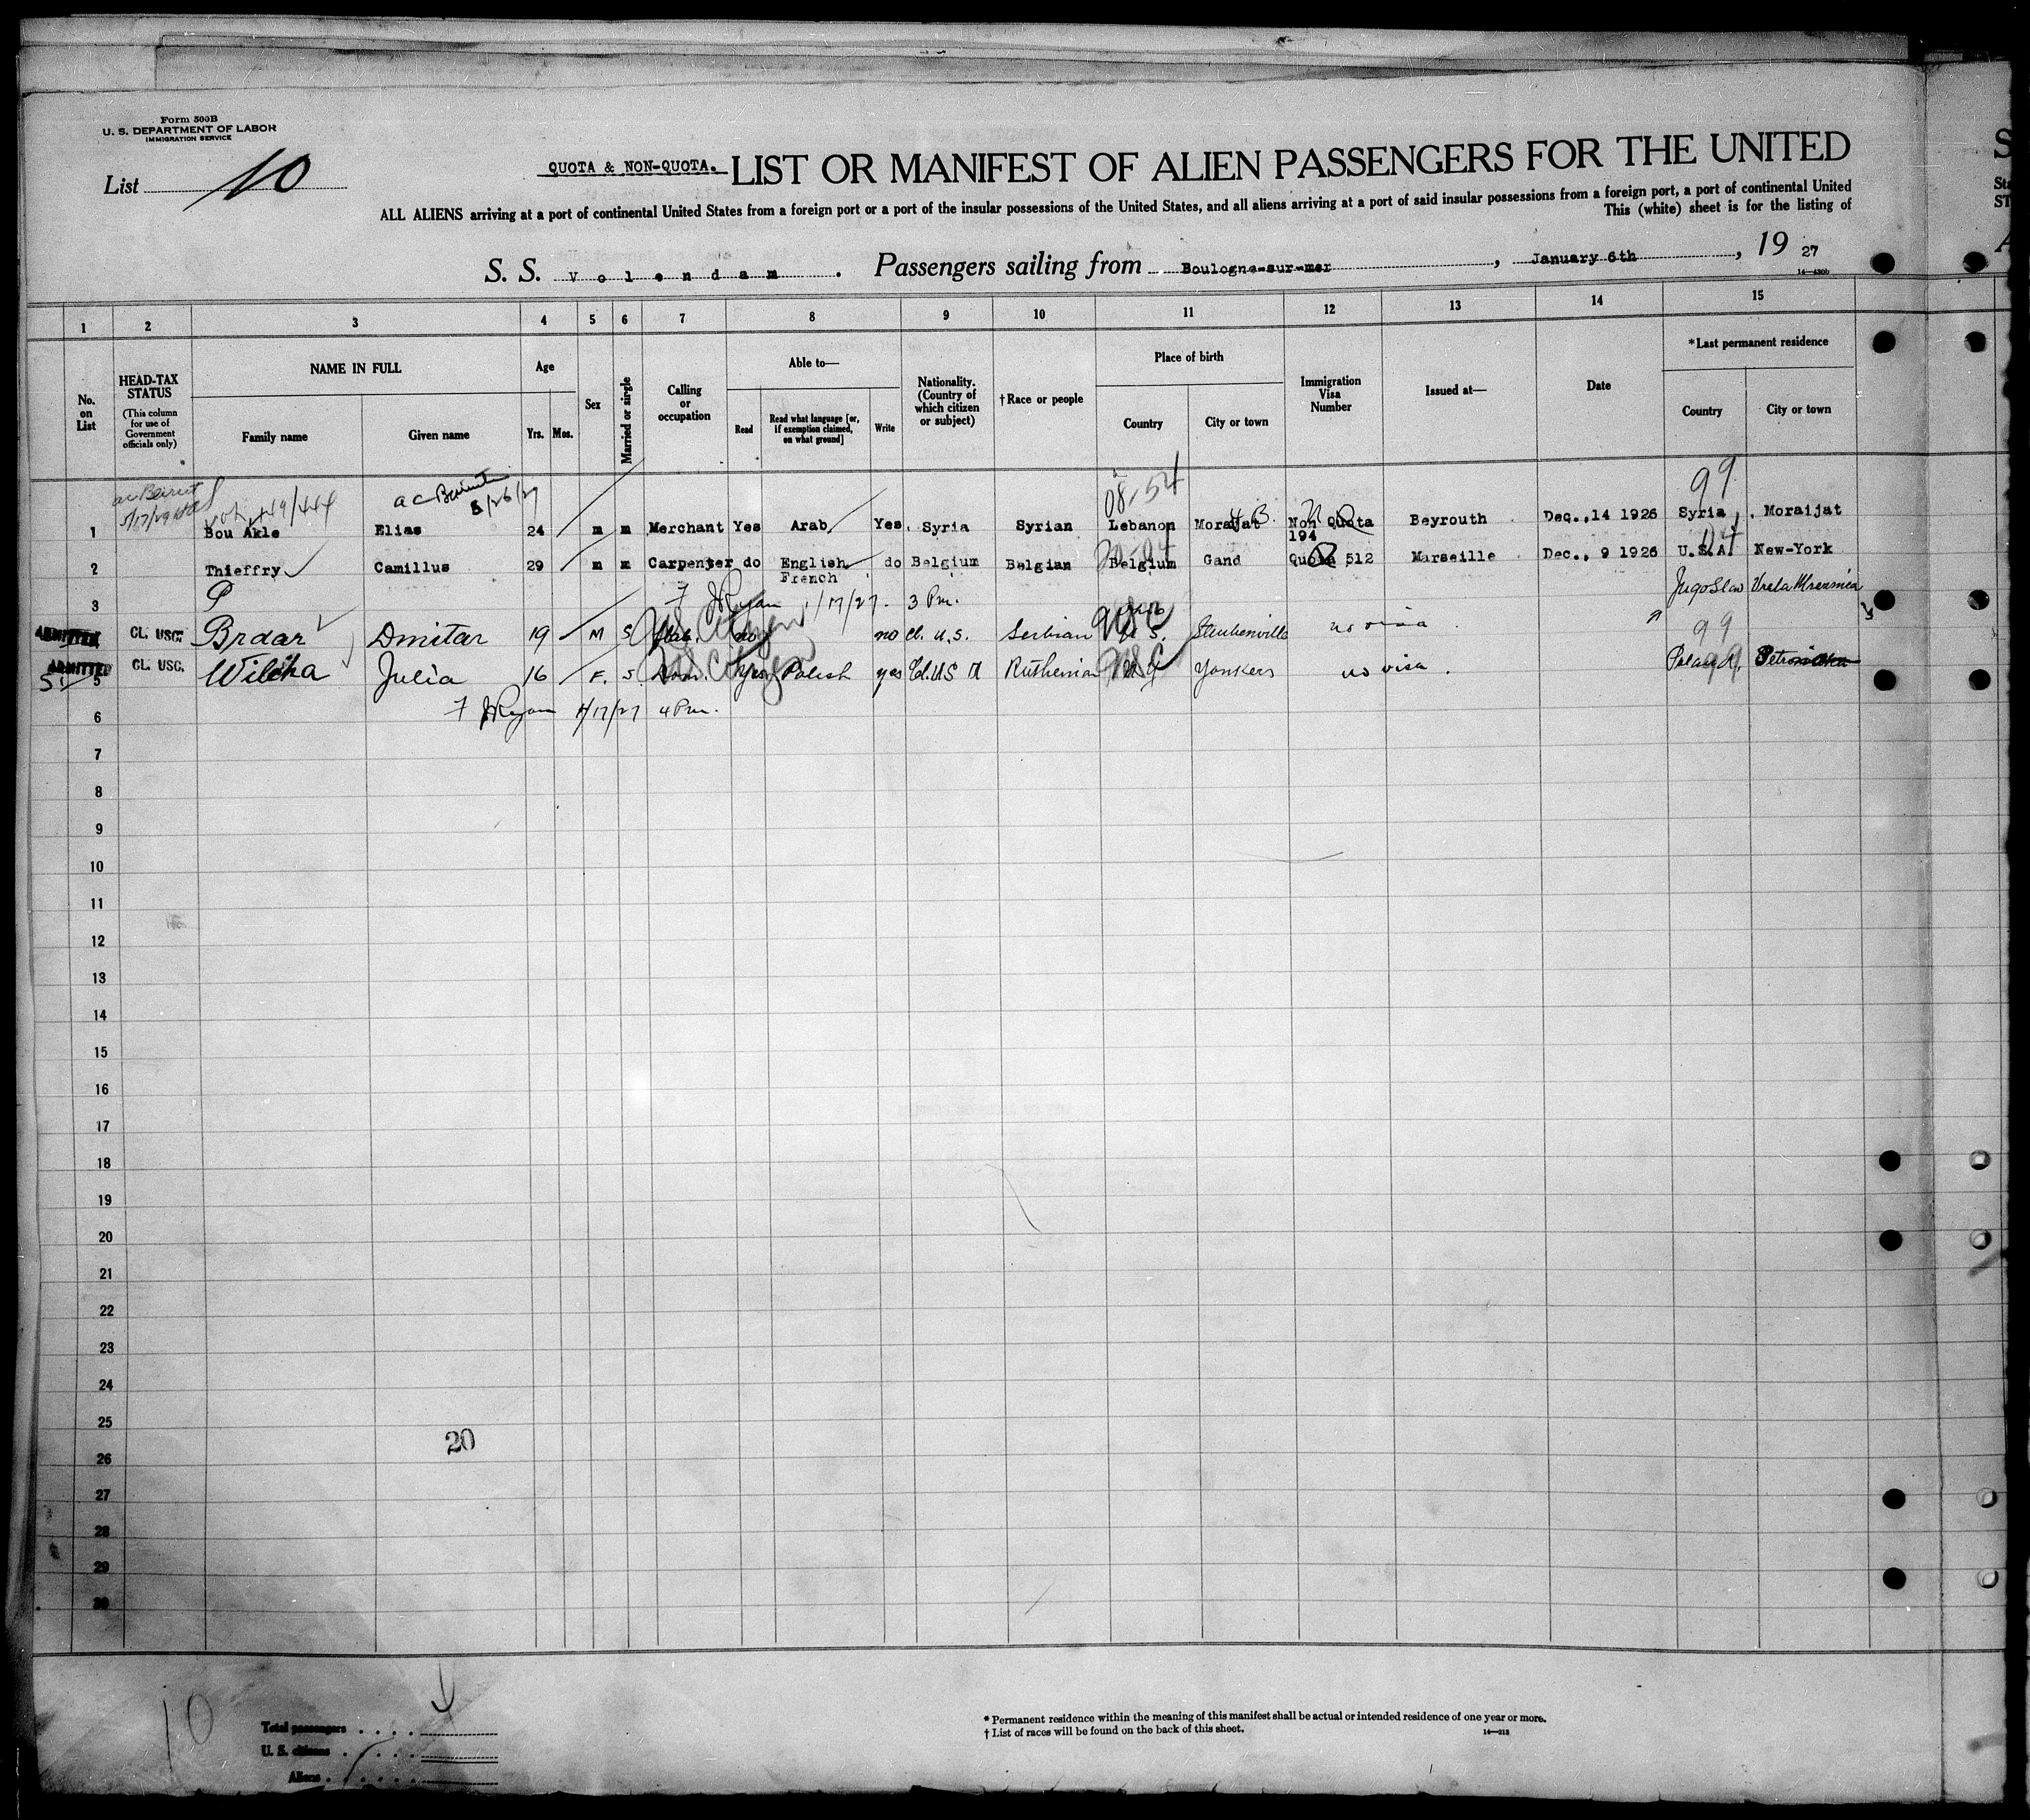 Form 500B
U. S. DEPARTMENT OF LABOR
IMMIGRATION SERVICE
List 10
QUOTA & NON-QUOTA. LIST OR MANIFEST OF ALIEN PASSENGERS FOR THE UNITED
ALL ALIENS arriving at a port of continental United States from a foreign port or a port of the insular possessions of the United States, and all aliens arriving at a port of said insular possessions from a foreign port, a port of continental United
This (white) sheet is for the listing of
S. S. Volendam. Passengers sailing from Boulogne-sur-mer, January 6th, 19 27
14—430b
1 2 3 4 5 6 7 8 9 10 11 12 13 14 15
No. on List
HEAD-TAX STATUS
(This column for use of Government officials only)
NAME IN FULL
Family name Given name
Age
Yrs. Mos.
Sex
Married or single
Calling or occupation
Able to—
Read
Read what language [or, if exemption claimed, on what ground]
Write
Nationality. (Country of which citizen or subject)
†Race or people
Place of birth
Country City or town
Immigration Visa Number
Issued at—
Date
*Last permanent residence
Country City or town
ac Beirut 5/17/29 49/444 ac Beirut 5/26/27 08-54 99
1 Bou Akle Elias 24 m m Merchant Yes Arab Yes. Syria Syrian Lebanon Moraijat Non Quota 194 Beyrouth Dec.,14 1926 Syria . Moraijat
2 Thieffry Camillus 29 m m Carpenter do English French do Belgium Belgian Belgium Gand Quota 512 Marseille Dec., 9 1926 U.S.A. New-York
3 P F JRyan 1/17/27. 3 Pm.
Jugo Slav
ADMITTED CL. USC. Brdar Dmitar 19 M S US Citizen no no cl. U.S. Serbian USC U S. Steubenville no visa 99
ADMITTED 5 5 CL. USC. Wilcka Julia 16 F. S. Dom. US Citizen yes Polish yes Cl. US Ruthenian USC N Y Yonkers no visa. Poland, 99
6 F JRyan 1/17/27 4 Pm.
7
8
9
10
11
12
13
14
15
16
17
18
19
20
21
22
23
24
25
20
26
27
28
29
30
10
Total passengers . . . .
U. S. citizens . . . . .
Aliens . . . . . .
* Permanent residence within the meaning of this manifest shall be actual or intended residence of one year or more.
† List of races will be found on the back of this sheet. 14—213